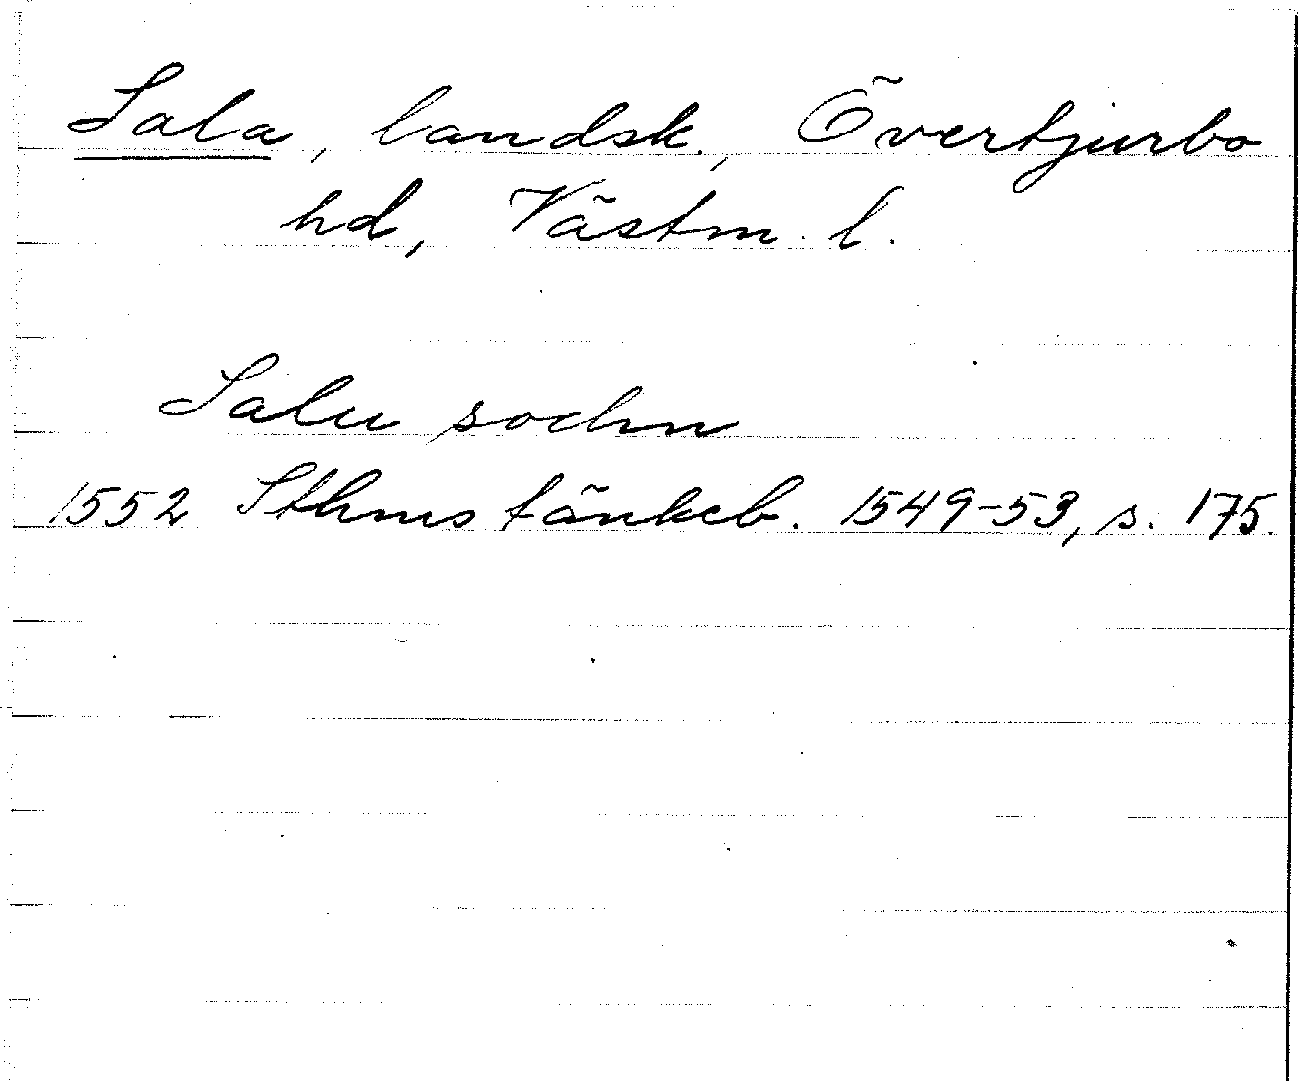 Sala, landsk., Övertjurbo
hd, Västm. l.
Salu sochn
1552 Sthms tänkeb. 1549-53, s. 175.